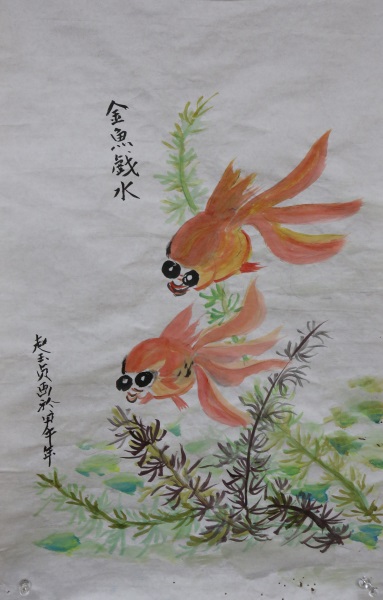 金魚戯水
赵玉贞画於甲午年